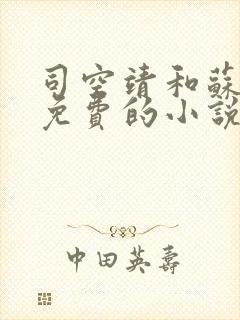 司空靖和蘇
免費的小說
中田英壽